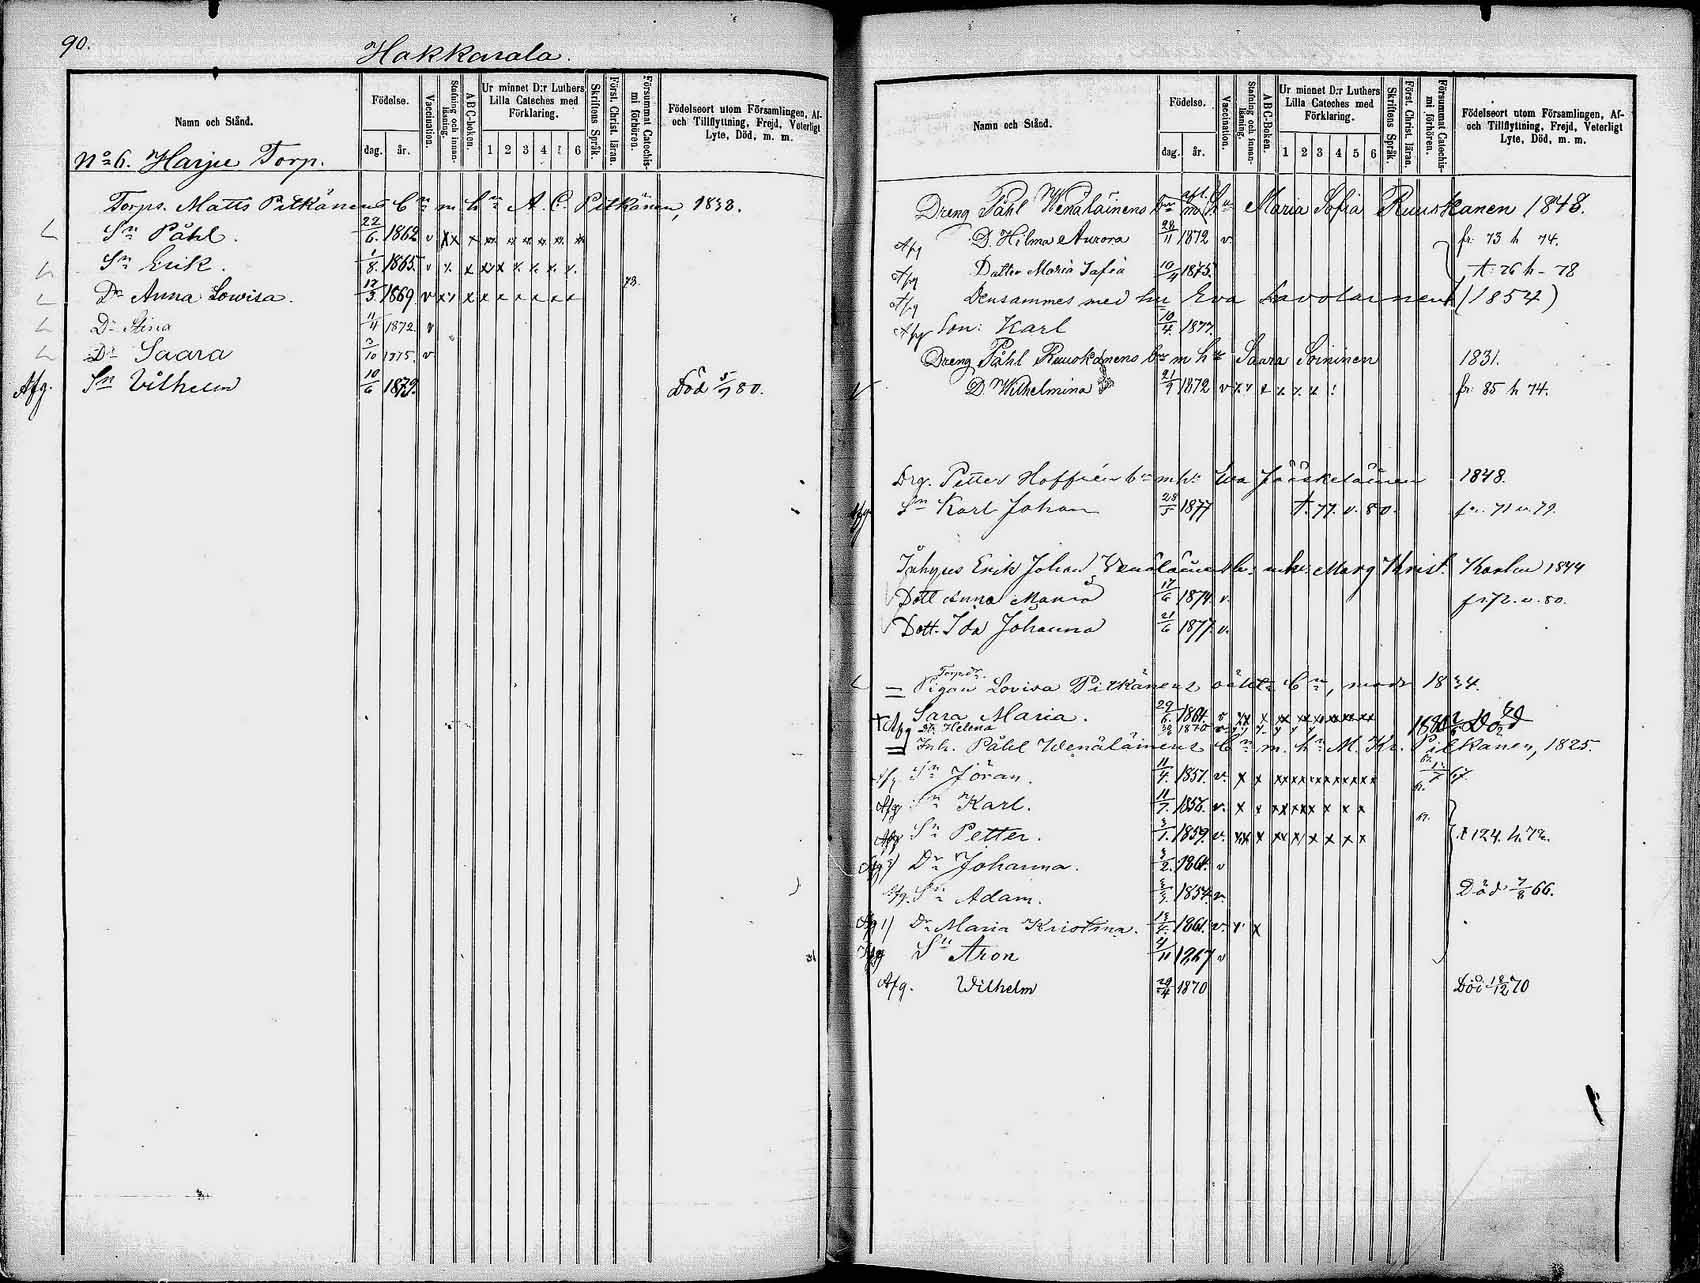 90.
Hakkarala.
Namn och Stånd.
Födelse.
dag.
år.
Vaccination.
Stafning och innan-läsning.
A B C-boken.
Ur minnet D:r Luthers Lilla Cateches med Förklaring.
1 2 3 4 5 6
Skriftens Språk.
Först. Christ. läran.
Försummat Catechis-mi förhören.
Födelseort utom Församlingen, Af- och Tillflyttning, Frejd, Veterligt Lyte, Död, m. m.
No 6. Harju Torp.
Torps. Matts Pitkänens bn m hu A. C. Pitkänen, 1833.
Sn Påhl. 22/6. 1862 v
Sn Erik. 1/8. 1865. v
Dr Anna Lowisa. 17/3. 1869 v 78.
Dr Stina 11/4 1872 v
Dr Saara 3/10 1875. v
Afg. Sn Vilhelm 10/6 1879. Död 5/9 80.
Namn och Stånd.
Födelse.
dag.
år.
Vaccination.
Stafning och innan-läsning.
A B C-Boken.
Ur minnet D:r Luthers Lilla Cateches med Förklaring.
1 2 3 4 5 6
Skriftens Språk.
Först. Christ. läran.
Försummat Catechis-mi förhören.
Födelseort utom Församlingen, Af- och Tillflyttning, Frejd, Veterligt Lyte, Död, m. m.
Dreng Påhl Wenäläinens bn m hu Maria Sofia Ruuskanen 1848.
Afg D. Hilma Aurora 28/11 1872 v. fr. 73 h 74.
Afg Dotter Maria Safia 10/4 1875. t. 76 h - 78
Afg Densammes med hu Eva Savolainen (1854)
Afg Son: Karl 10/4. 1877.
Dreng Påhl Ruuskanens bn m hu Saara Soininen 1831.
D. Wilhelmina 21/9 1872 v fr. 85 h 74.
Drg. Petter Hoffrén bn m hu Eva Jääskeläinen 1848.
Afg. Sn Karl Johan 28/5 1877 t. 77. v. 80. fr. 71 v. 79.
Inhyses Erik Johan Venäläinen bn m hu Marg Krist. 1844
Dott Anna Maria 17/6 1874 v. fr 72. v. 80.
Dott. Ida Johanna 21/6 1877. v.
Torpdr.
Pigan Lovisa Pitkänens oäkta bn, moder 1834.
Sara Maria. 29/6. 1861. v
Afg Dr. Helena 1870 v Död
Inh. Påhl Wenäläinens bn m. hu M. Kr. Pitkänen, 1825.
Afg Sn Jöran. 11/4. 1851. v.
Afg Sn Karl. 11/7. 1856. v.
Afg Sn Petter. 3/1. 1859. v. t 124. h. 72.
Afg 2) Dr Johanna. 3/2. 1864. v
Afg. Sn Adam. 3/3. 1854. v. Död 7/8 66.
Afg 1) Dr Maria Kristina. 1861. v
Afg Sn Aron 4/11 1867 v
Afg. Wilhelm 29/4 1870 Död 18/12 70